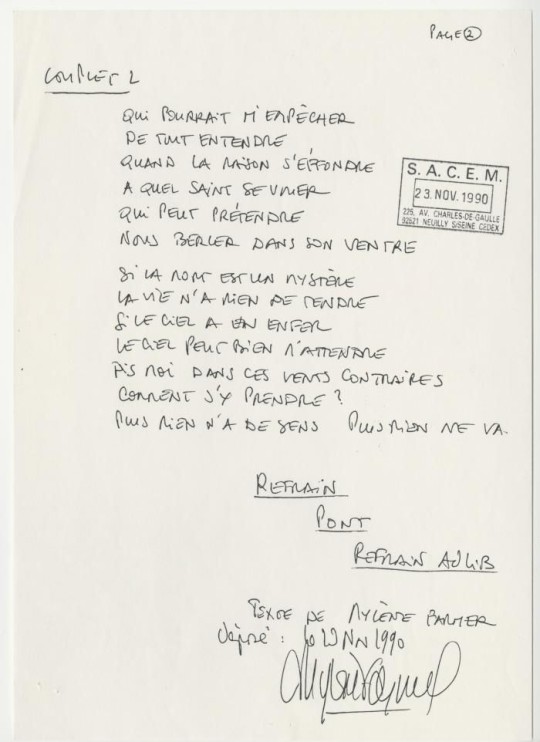 PAGE 2
COUPLET 2
QUI POURRAIT M'EMPÊCHER
DE TOUT ENTENDRE
QUAND LA RAISON S'EFFONDRE
A QUEL SAINT SE VOUER
QUI PEUT PRÉTENDRE
NOUS BERCER DANS SON VENTRE
S. A. C. E. M.
23. NOV. 1990
225, AV. CHARLES-DE-GAULLE
92521 NEUILLY S/SEINE CEDEX
SI LA MORT EST UN MYSTÈRE
LA VIE N'A RIEN DE TENDRE
SI LE CIEL A UN ENFER
LE CIEL PEUT BIEN M'ATTENDRE
DIS MOI DANS CES VENTS CONTRAIRES
COMMENT S'Y PRENDRE ?
PLUS RIEN N'A DE SENS PLUS RIEN NE VA.
REFRAIN
PONT
REFRAIN AD LIB
TEXTE DE MYLÈNE FARMER
déposé : le 23 NOV 1990